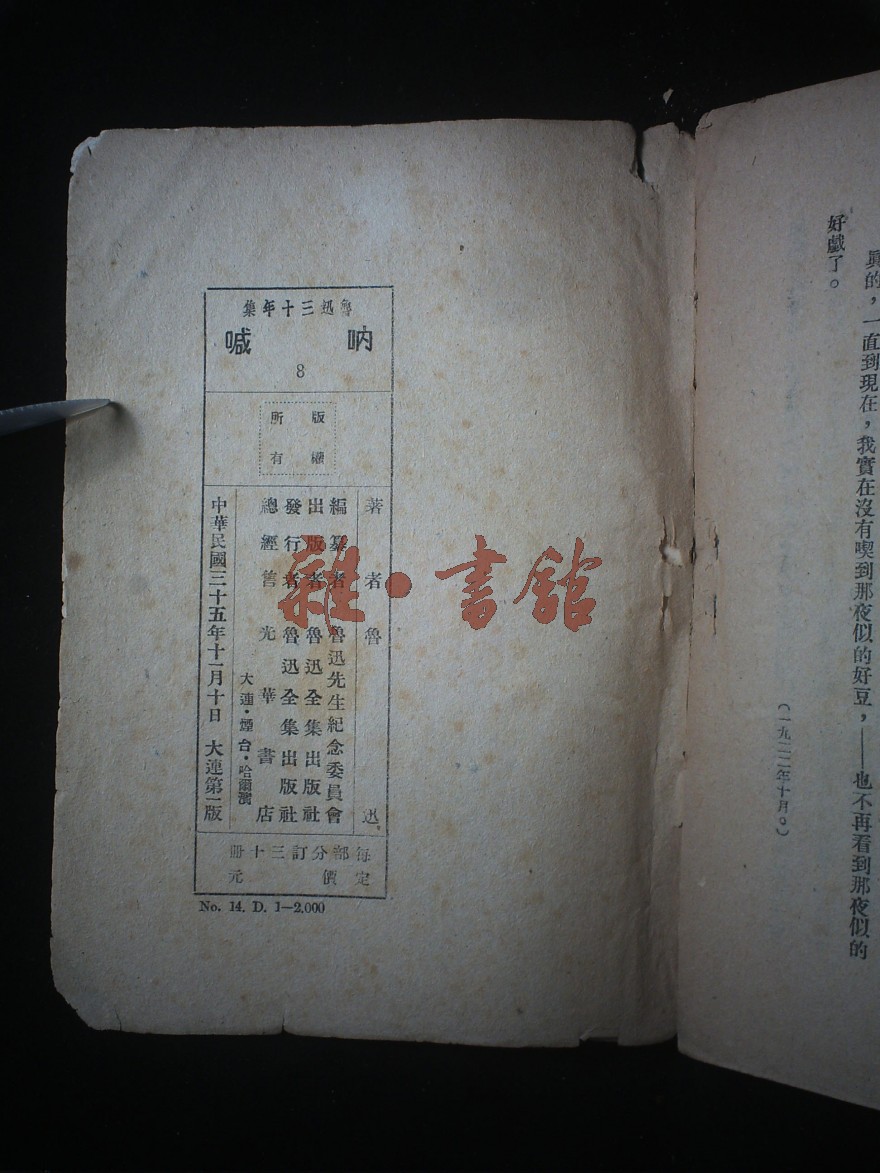 真的，一直到現在，我實在沒有喫到那夜似的好豆，——也不再看到那夜似的
好戲了。
（一九二二年十月。）
魯迅三十年集
吶喊
8
版權
所有
著者魯迅
編纂者魯迅先生紀念委員會
出版者魯迅全集出版社
發行者魯迅全集出版社
總經售光華書店
大連·煙台·哈爾濱
中華民國三十五年十一月十日 大連第一版
每部分訂三十冊
定價 元
No. 14. D. 1—2,000
雜·書館